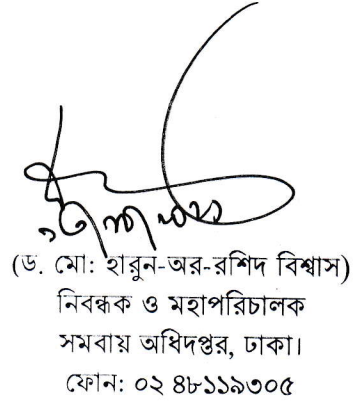 (ড. মো: হারুন-অর-রশিদ বিশ্বাস)
নিবন্ধক ও মহাপরিচালক
সমবায় অধিদপ্তর, ঢাকা।
ফোন: ০২ ৪৮১১৯৩০৫